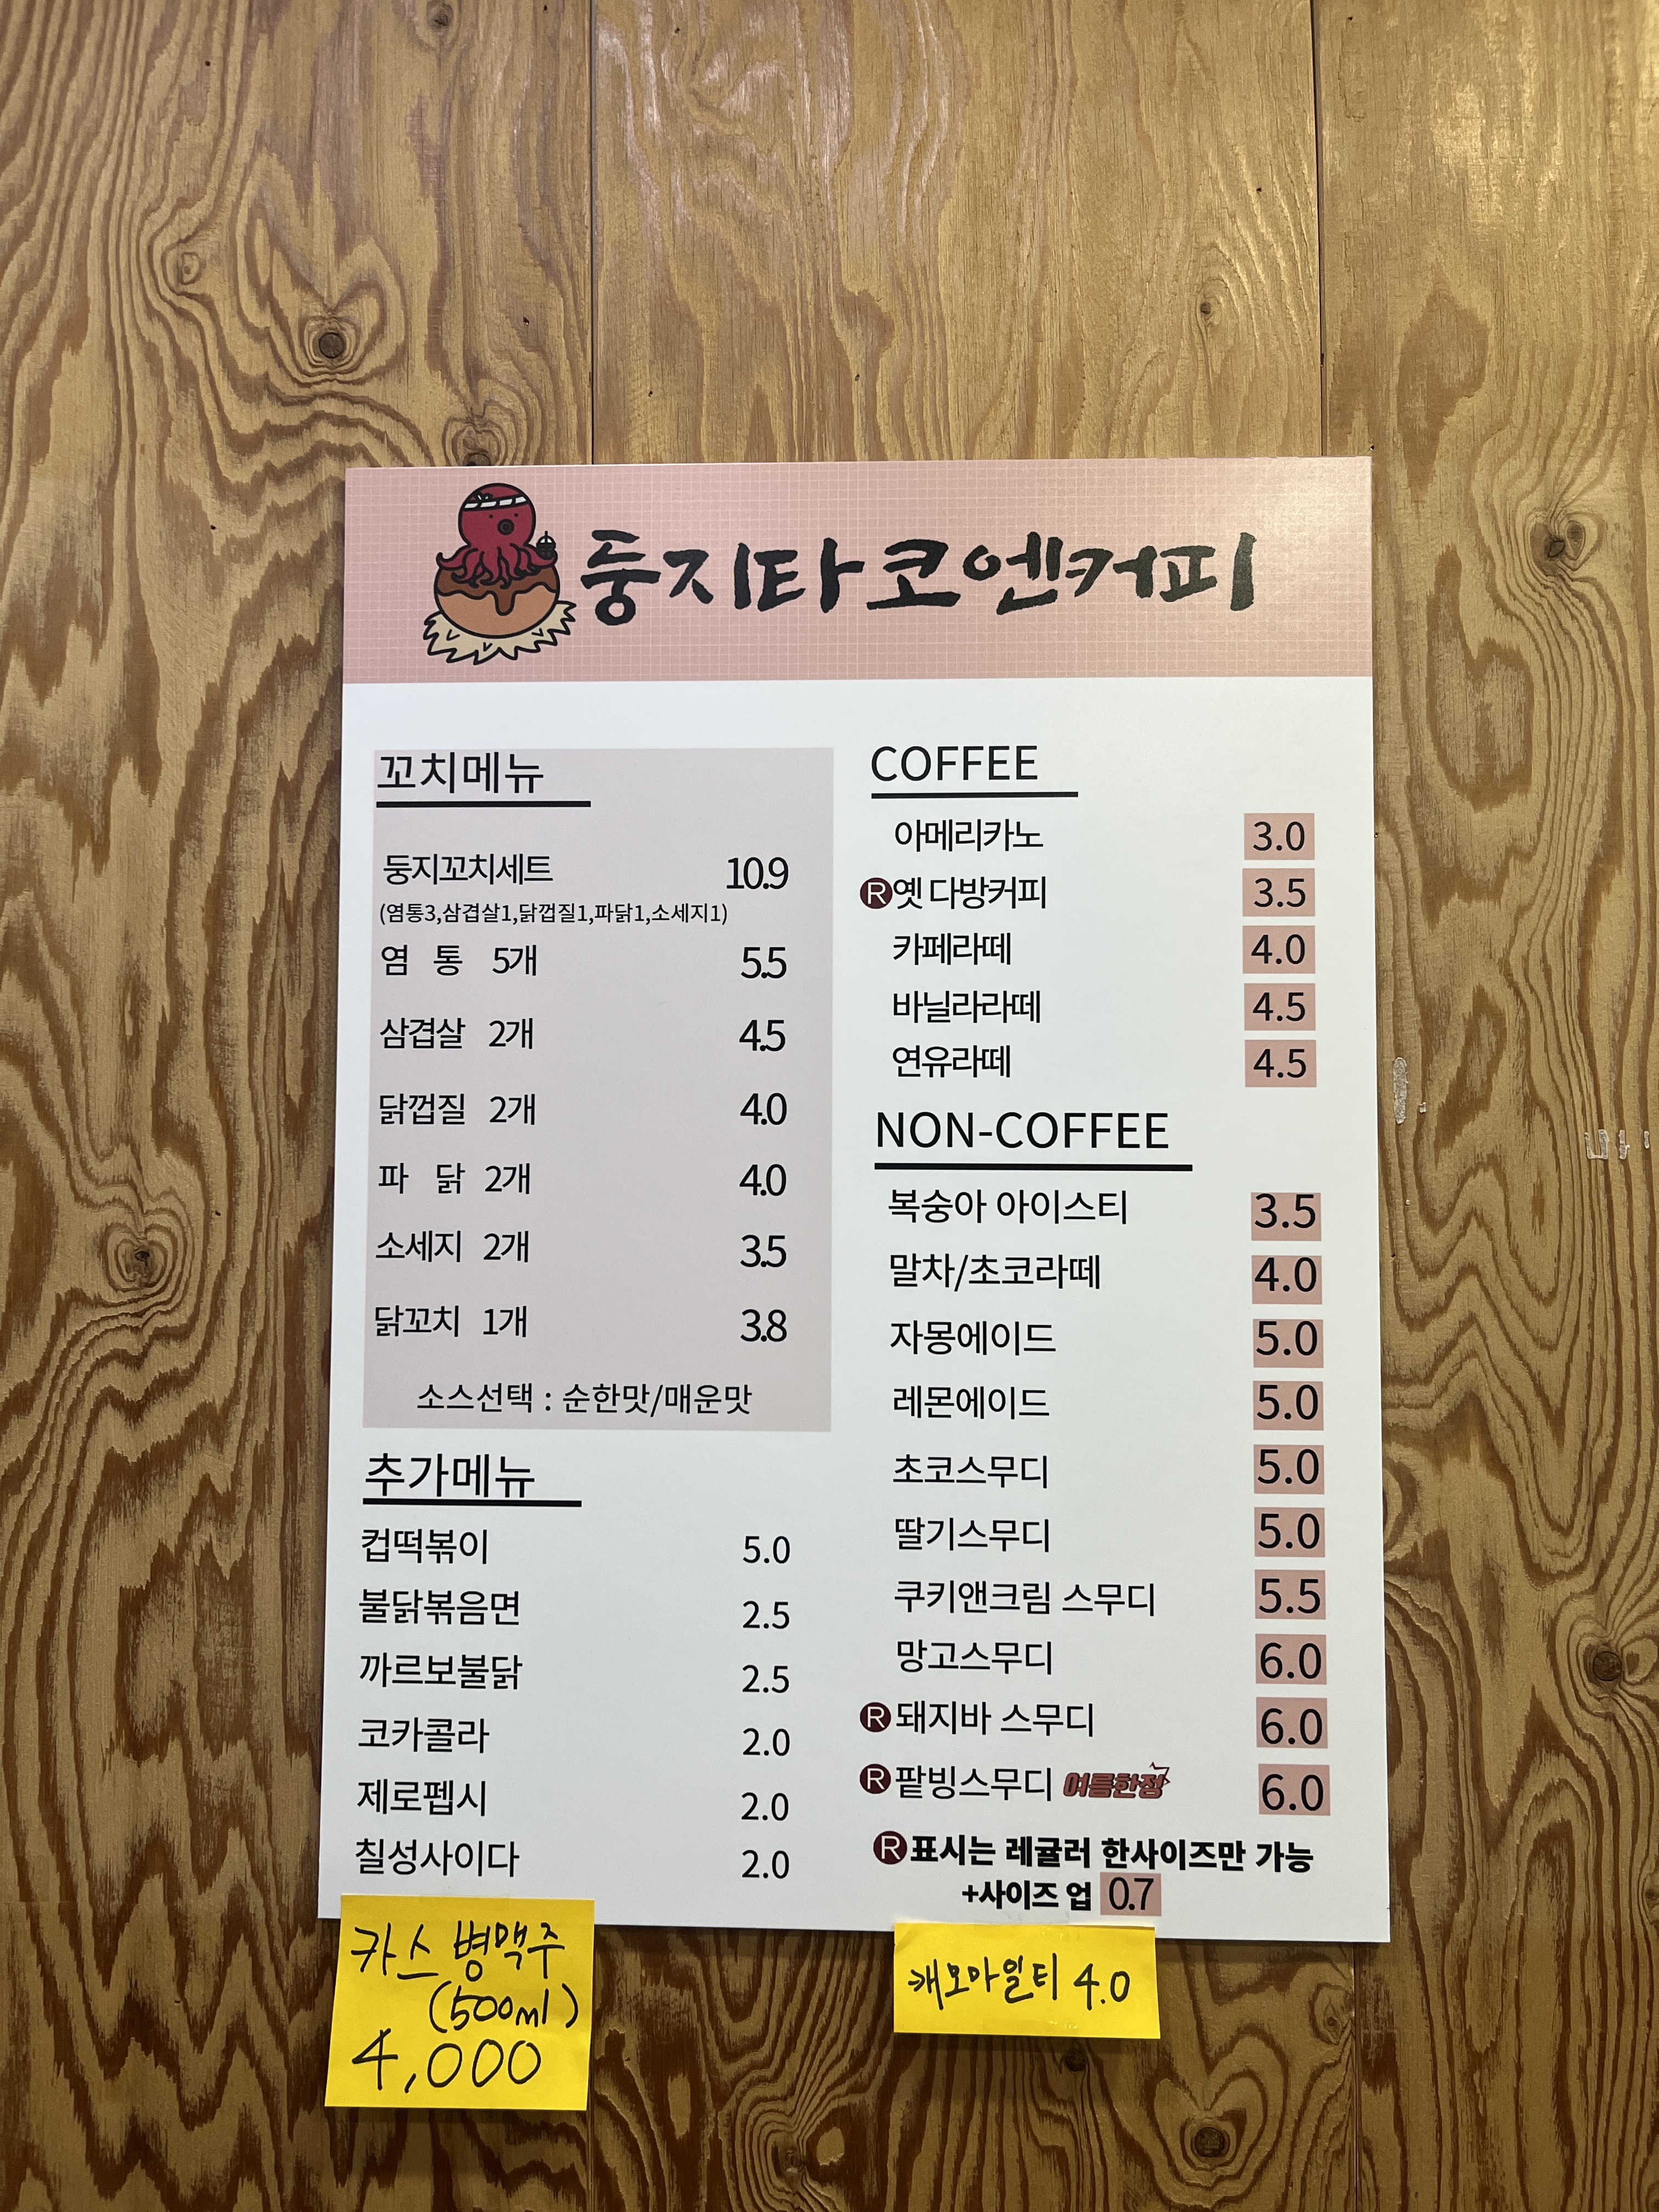 둥지타코엔커피
꼬치메뉴
둥지꼬치세트 10.9
(염통3,삼겹살1,닭껍질1,파닭1,소세지1)
염 통 5개 5.5
삼겹살 2개 4.5
닭껍질 2개 4.0
파 닭 2개 4.0
소세지 2개 3.5
닭꼬치 1개 3.8
소스선택 : 순한맛/매운맛
추가메뉴
컵떡볶이 5.0
불닭볶음면 2.5
까르보불닭 2.5
코카콜라 2.0
제로펩시 2.0
칠성사이다 2.0
카스 병맥주
(500ml)
4,000
COFFEE
아메리카노 3.0
R옛 다방커피 3.5
카페라떼 4.0
바닐라라떼 4.5
연유라떼 4.5
NON-COFFEE
복숭아 아이스티 3.5
말차/초코라떼 4.0
자몽에이드 5.0
레몬에이드 5.0
초코스무디 5.0
딸기스무디 5.0
쿠키앤크림 스무디 5.5
망고스무디 6.0
R돼지바 스무디 6.0
R팥빙스무디 여름한정 6.0
R표시는 레귤러 한사이즈만 가능
+사이즈 업 0.7
캐모마일티 4.0